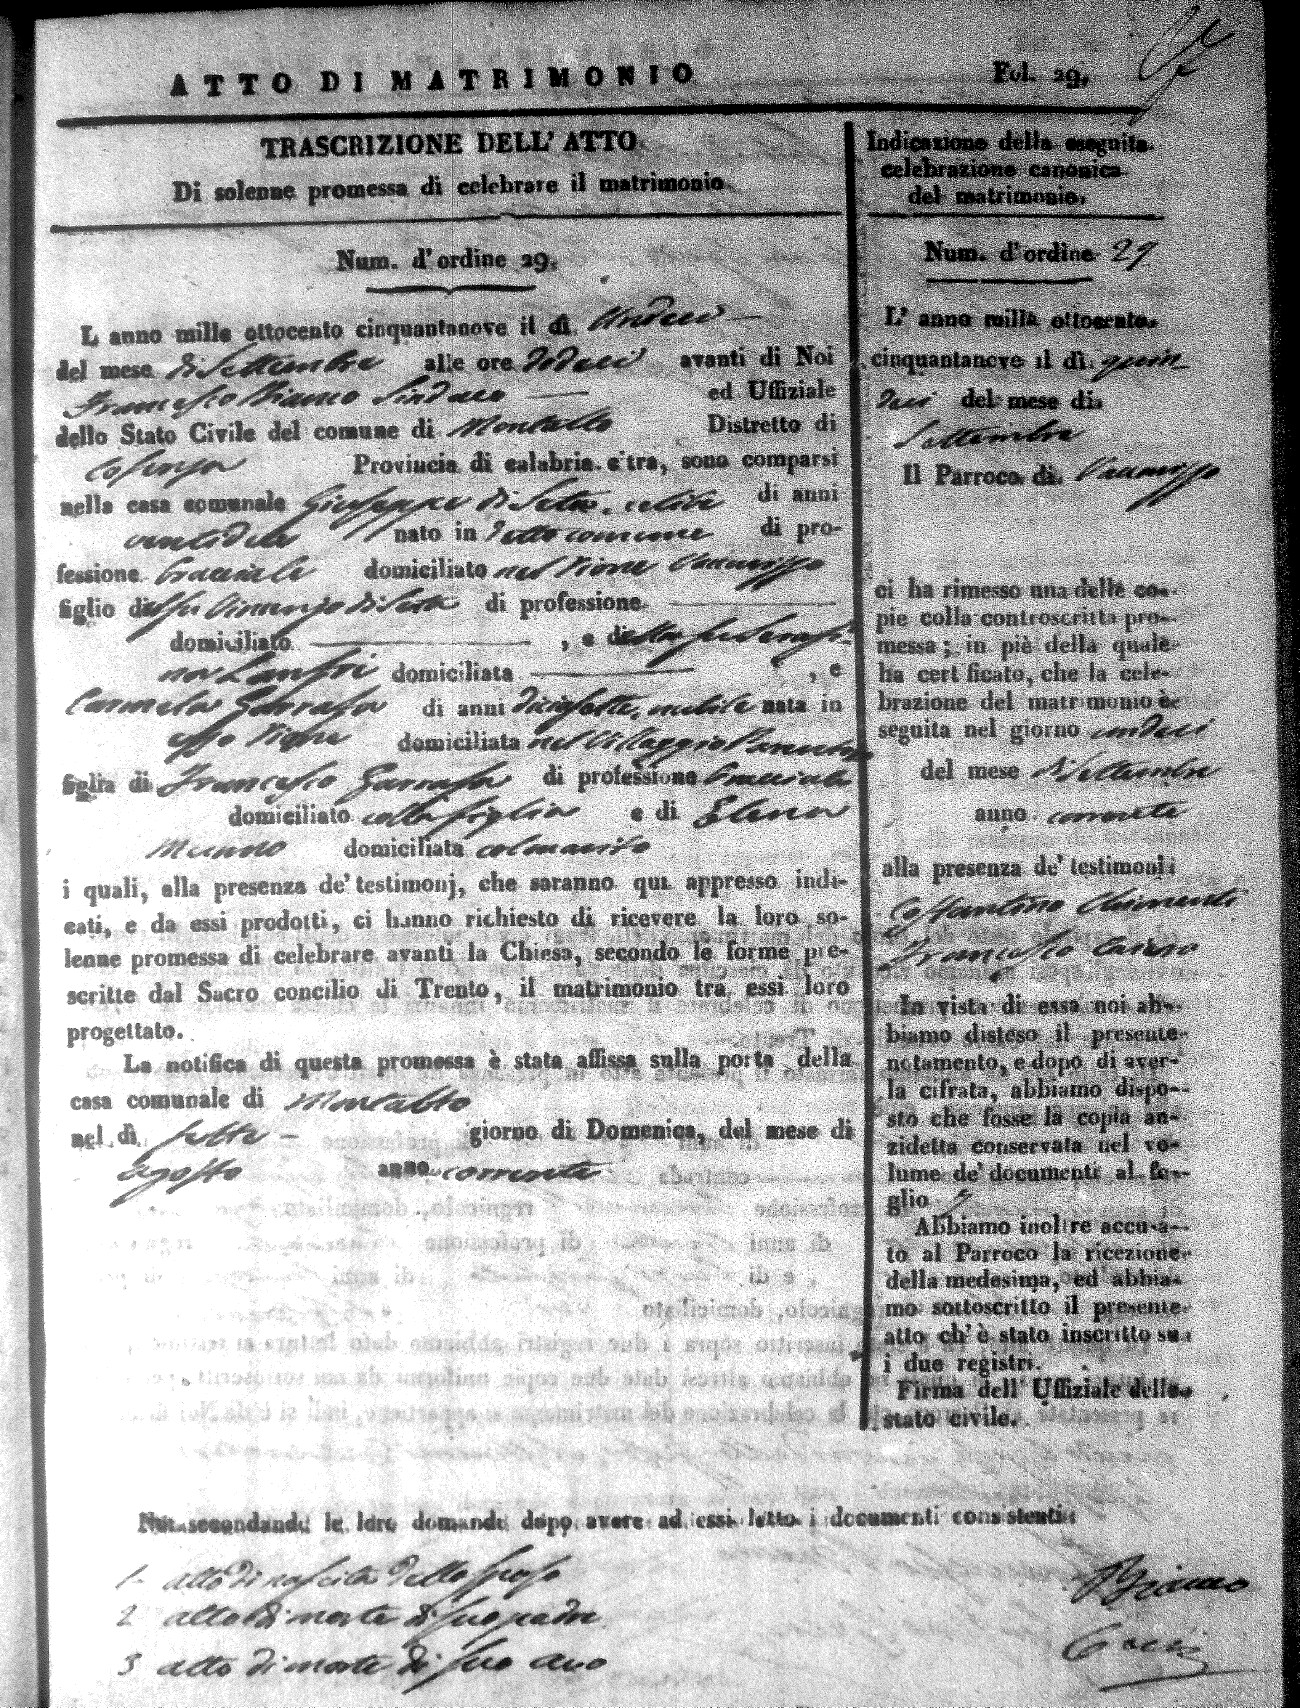 ATTO DI MATRIMONIO
Fol. 29.
TRASCRIZIONE DELL' ATTO
Di solenne promessa di celebrare il matrimonio.
Num. d'ordine 29.
L anno mille ottocento cinquantanove il dì Undeci
del mese di Settembre alle ore dodeci avanti di Noi
Francesco Bianco Sindaco ed Uffiziale
dello Stato Civile del comune di Montalto Distretto di
Cosenza Provincia di calabria c'tra, sono comparsi
nella casa comunale Giuseppe di Seta, celibe di anni
nato in detto comune di pro-
fessione Bracciale domiciliato nel Rione Vaccarizzo
figlio di di Seta di professione
domiciliato , e di
domiciliata , e
Carmela Garrafa di anni diciasette, nubile nata in
esso Rione domiciliata nel Villaggio
figlia di Francesco Garrafa di professione Bracciale
domiciliato colla figlia e di Elena
Munno domiciliata col marito
i quali, alla presenza de' testimonj, che saranno qui appresso indi-
cati, e da essi prodotti, ci hanno richiesto di ricevere la loro so-
lenne promessa di celebrare avanti la Chiesa, secondo le forme pre-
scritte dal Sacro concilio di Trento, il matrimonio tra essi loro
progettato.
La notifica di questa promessa è stata affissa sulla porta della
casa comunale di Montalto
nel dì sette giorno di Domenica, del mese di
agosto anno corrente
Indicazione della eseguita
celebrazione canonica
del matrimonio.
Num. d'ordine 29
L' anno mille ottocento
cinquantanove il dì quin
deci del mese di
Settembre
Il Parroco di Vaccarizzo
ci ha rimesso una delle co-
pie colla controscritta pro-
messa; in piè della quale
ha cert ficato, che la cele-
brazione del matrimonio è
seguita nel giorno undeci
del mese di Settembre
anno corrente
alla presenza de' testimoni
Costantino Chimenti
Francesco Caruso
In vista di essa noi ab-
biamo disteso il presente
notamento, e dopo di aver-
la cifrata, abbiamo dispo-
sto che fosse la copia an-
zidetta conservata nel vo-
lume de' documenti al fo-
glio
Abbiamo inoltre accusa-
to al Parroco la ricezione
della medesima, ed abbia-
mo sottoscritto il presente
atto ch' è stato inscritto su
i due registri.
Firma dell' Uffiziale dello
stato civile.
Noi secondando le loro domande dopo avere ad essi letto i documenti consistenti
1- atto di nascita dello sposo
2 atto di morte di suo padre
3 atto di morte di suo avo
Bianco